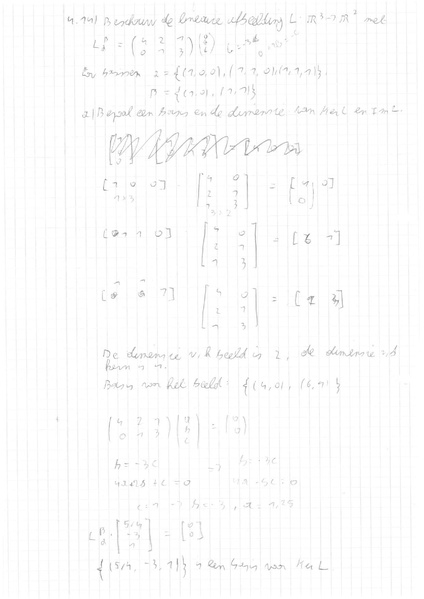 4.11) Beschouw de lineaire afbeelding L: ℝ³→ℝ² met
L = ( 4 2 1 / 0 1 3 )
En bassen α = {(1,0,0), (1,1,0), (1,1,1)},
β = {(1,0), (1,1)}
a) Bepaal een basis en de dimensie van Ker L en Im L.
[1 0 0] [ 4 0 / 2 1 / 1 3 ] = [4 0]
1×3
[1 1 0] [ 4 0 / 2 1 / 1 3 ] = [6 1]
[ 1] [ 4 0 / 2 1 / 1 3 ] = [ ]
De dimensie v.h beeld is 2, de dimensie v.d
kern 1.
Basis van het beeld: {(4,0), (6,1)}
( 4 2 1 / 0 1 3 ) ( a / b / c ) = ( 0 / 0 )
b = -3c → b = -3c
+ c = 0 = 0
c = 1 → b = -3, a = 1,25
L [ 5/4 / -3 / 1 ] = [ 0 / 0 ]
{(5/4, -3, 1)} is een basis voor Ker L